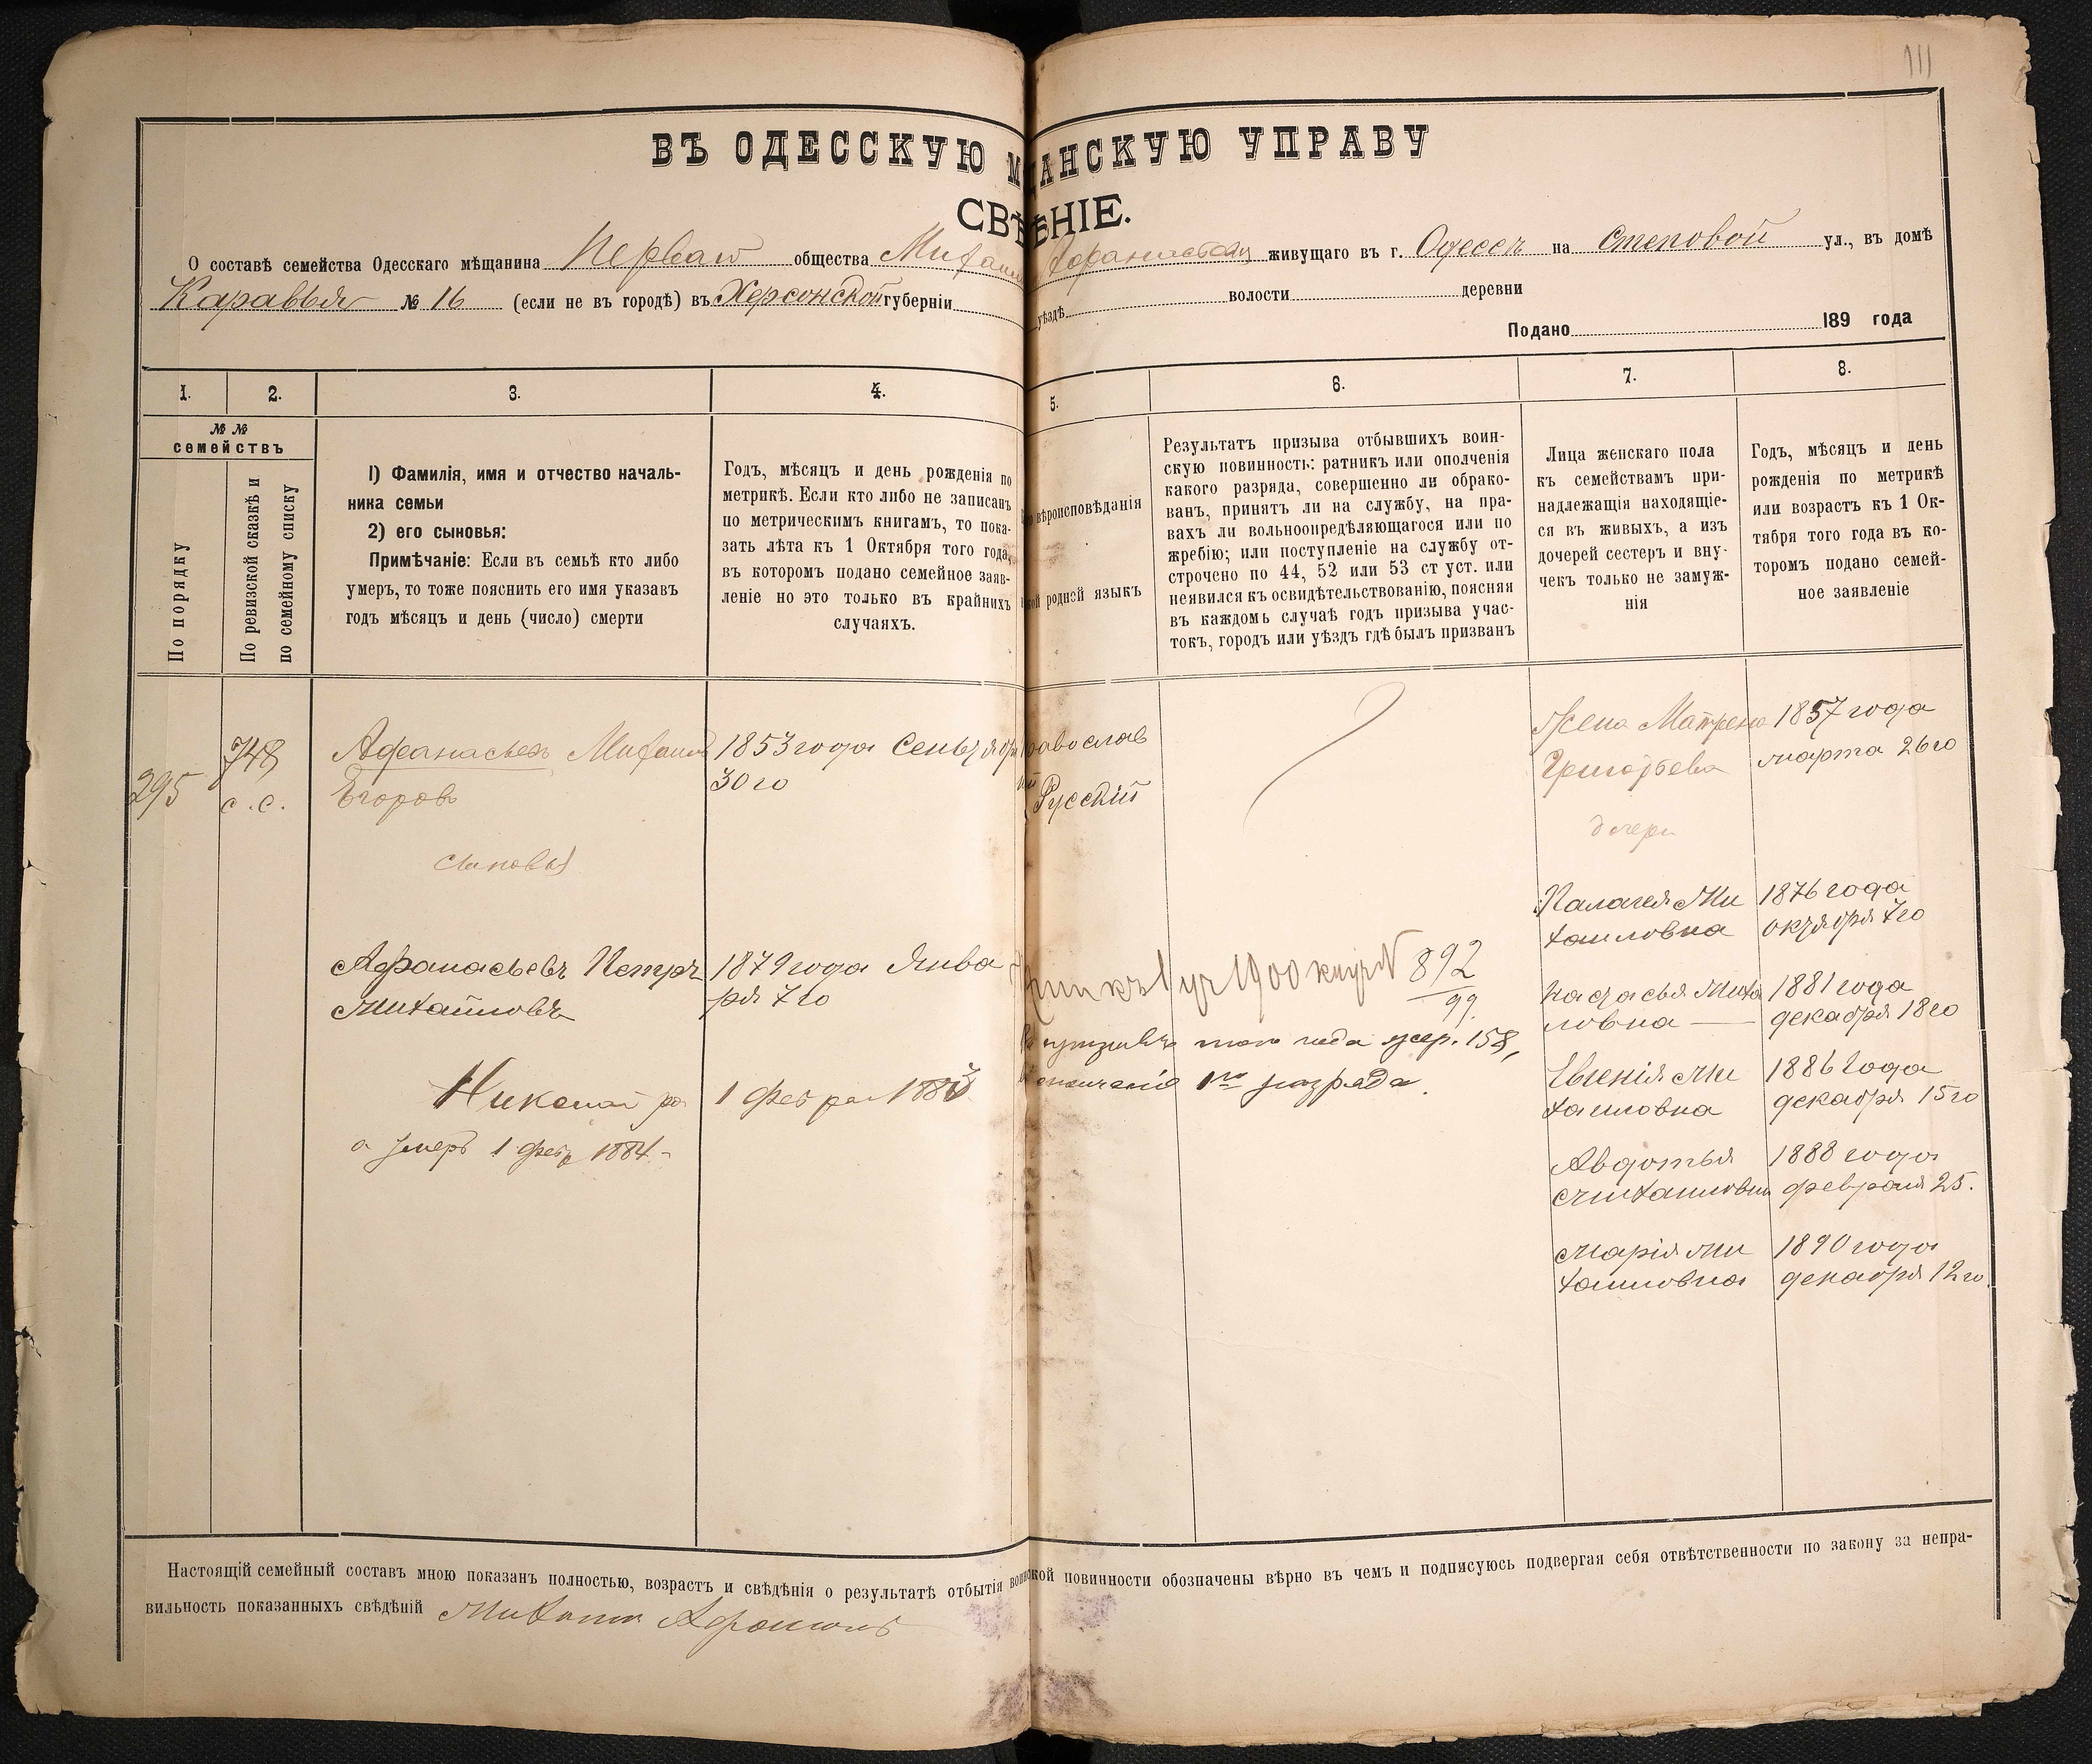 111
ВЪ ОДЕССКУЮ М ЩАНСКУЮ УПРАВУ
СВѢ ѢНІЕ.
О составѣ семейства Одесскаго мѣщанина Перваго общества Михаила Афанасьева живущаго въ г. Одессѣ на Степовой ул., въ домѣ
Каравья № 16 (если не въ городѣ) въ Херсонской губерніи уѣздѣ волости деревни
Подано 189 года
1. 2. 3. 4. 5. 6. 7. 8.
№ №
семействъ
По порядку
По ревизской сказкѣ и
по семейному списку
1) Фамилія, имя и отчество началь-
ника семьи
2) его сыновья:
Примѣчаніе: Если въ семьѣ кто либо
умеръ, то тоже пояснить его имя указавъ
годъ мѣсяцъ и день (число) смерти
Годъ, мѣсяцъ и день рожденія по
метрикѣ. Если кто либо не записанъ
по метрическимъ книгамъ, то пока-
зать лѣта къ 1 Октября того года,
въ которомъ подано семейное заяв-
леніе но это только въ крайнихъ
случаяхъ.
вѣроисповѣданія
родной языкъ
Результатъ призыва отбывшихъ воин-
скую повинность: ратникъ или ополченія
какого разряда, совершенно ли обрако-
ванъ, принятъ ли на службу, на пра-
вахъ ли вольноопредѣляющагося или по
жребію; или поступленіе на службу от-
строчено по 44, 52 или 53 ст уст. или
неявился къ освидѣтельствованію, поясняя
въ каждомъ случаѣ годъ призыва учас-
токъ, городъ или уѣздъ гдѣ былъ призванъ
Лица женскаго пола
къ семействамъ при-
надлежащія находящіе-
ся въ живыхъ, а изъ
дочерей сестеръ и вну-
чекъ только не замуж-
нія
Годъ, мѣсяцъ и день
рожденія по метрикѣ
или возрастъ къ 1 Ок-
тября того года въ ко-
торомъ подано семей-
ное заявленіе
295
748
с.с.
Афанасьевъ Михаилъ
Егоровъ
1853 года Сентября
30 го
равослав
Русскій
Жена Матрена
Григорьева
1857 года
марта 26 го
сыновья
дочери
Палагея Ми
хаиловна
1876 года
октября 7 го
Афанасьевъ Петръ
Михайловъ
1879 года Янва
ря 7 го
1 уч 1900 № 892
99
того года жер. 158,
1го разряда.
Настасья Михаи
ловна —
1881 года
декабря 18 го
Николай ро
1 февра 1883
а умеръ 1 февр 1884 -
Евгенія Ми
хаиловна
1886 года
декабря 15 го
Авдотья
Михаиловна
1888 года
февраля 25.
Марія Ми
хаиловна
1890 года
декабря 12 го.
Настоящій семейный составъ мною показанъ полностью, возрастъ и свѣдѣнія о результатѣ отбытія воинской повинности обозначены вѣрно въ чемъ и подписуюсь подвергая себя отвѣтственности по закону за непра-
вильность показанныхъ свѣдѣній Михаил